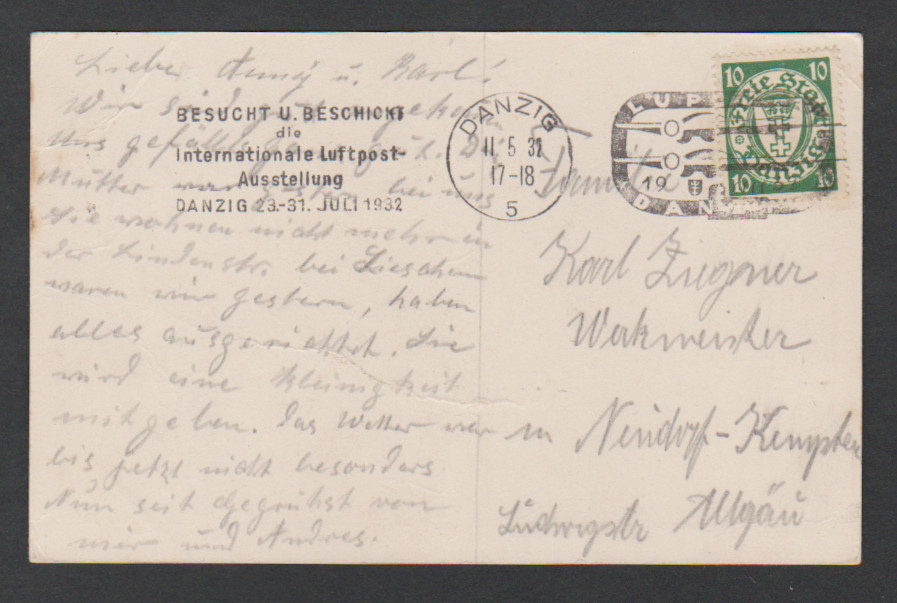 Lieber Anny u. Karl!
Wir sind gut
BESUCHT U. BESCHICKT
die
uns gefällt
Internationale Luftpost-
Ausstellung
Mutter war gestern bei uns
DANZIG 23.-31. JULI 1932
Sie wohnen nicht mehr in
der Lindenstr. bei Lieschen
waren wir gestern, haben
alles ausgerichtet. Sie
wird eine Kleinigkeit
mitgeben. Das Wetter war
bis jetzt nicht besonders.
Nun seit gegrühst von
mir und Andres.
DANZIG
11 5 32
17-18
5
LUP
19
DANZ
10 10
Freie Stadt
Danzig
10 10
Familie
Karl Ziegner
Werkmeister
in Neudorf-Kempten
Allgäu
Ludwigstr